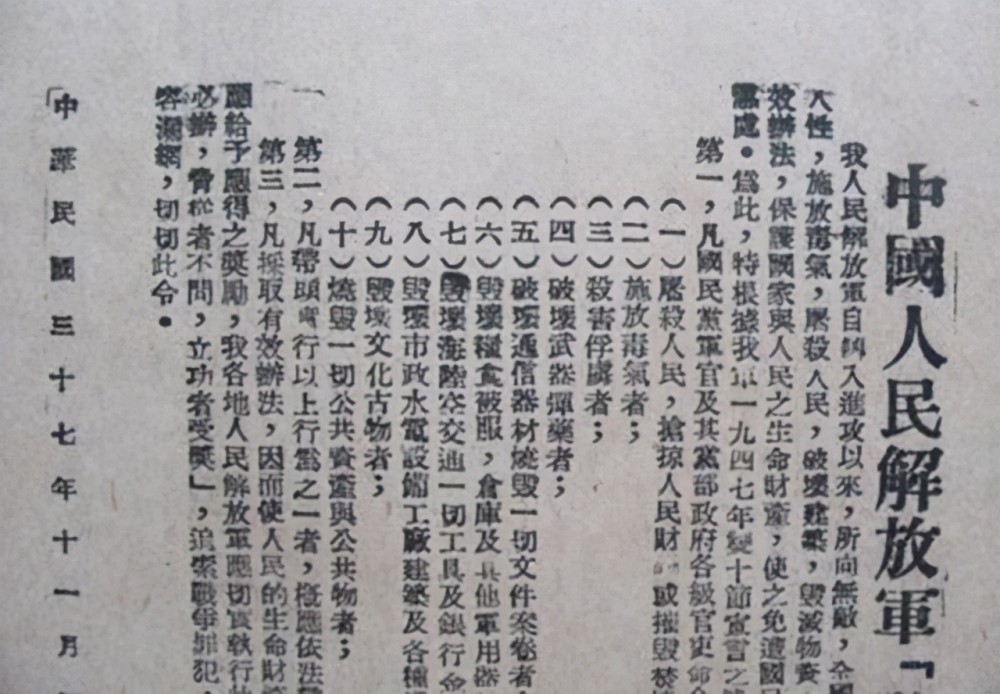 中國人民解放軍「
我人民解放軍自轉入進攻以來，所向無敵，全國
人性，施放毒氣，屠殺人民，破壞建築，毀滅物資
效辦法，保護國家與人民之生命財產，使之免遭國民
懲處。爲此，特根據我軍一九四七年雙十節宣言之
第一，凡國民黨軍官及其黨部政府各級官吏命令
（一）屠殺人民，搶掠人民財 或摧毀焚
（二）施放毒氣者；
（三）殺害俘虜者；
（四）破壞武器彈藥者；
（五）破壞通信器材燒毀一切文件案卷者
（六）毀壞糧食被服，倉庫及其他軍用器
（七）毀壞海陸空交通一切工具及銀行金
（八）毀壞市政水電設備工廠建築及各種
（九）毀壞文化古物者；
（十）燒毀一切公共資產與公共物者；
第二，凡帶頭實行以上行爲之一者，概應依法
第三，凡採取有效辦法，因而使人民的生命財
應給予應得之獎勵，我各地人民解放軍應切實執行
必辦，脅從者不問，立功者受獎」，追索戰爭罪犯，
容漏網，切切此令。
中華民國三十七年十一月